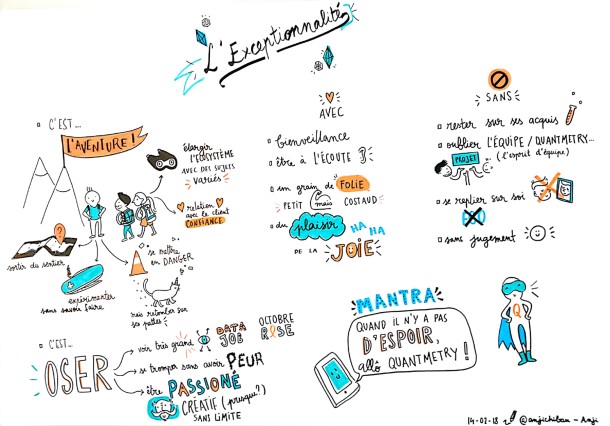 L'Exceptionnalité
C'EST...
l'AVENTURE !
élargir
l'ÉCOSYSTÈME
AVEC DES SUJETS
VARIÉS
relation
avec le client
CONFIANCE
sortir du sentier
expérimenter
sans savoir faire
se mettre
en DANGER
mais retomber sur
ses pattes
C'EST...
OSER
voir très grand
DATA
JOE
OCTOBRE
ROSE
se tromper sans avoir PEUR
être PASSIONÉ
CREATIF (presque?)
SANS LIMITE
AVEC
bienveillance
être à l'ÉCOUTE
son grain de FOLIE
PETIT mais COSTAUD
du plaisir
HA HA HA
DE LA JOIE
SANS
rester sur ses acquis
oublier l'ÉQUIPE / QUANTMETRY...
(l'esprit d'équipe)
PROJET
se replier sur soi
sans jugement
MANTRA
QUAND IL N'Y A PAS
D'ESPOIR,
allô QUANTMETRY !
Q
14-02-18 @anjichibau - Anji